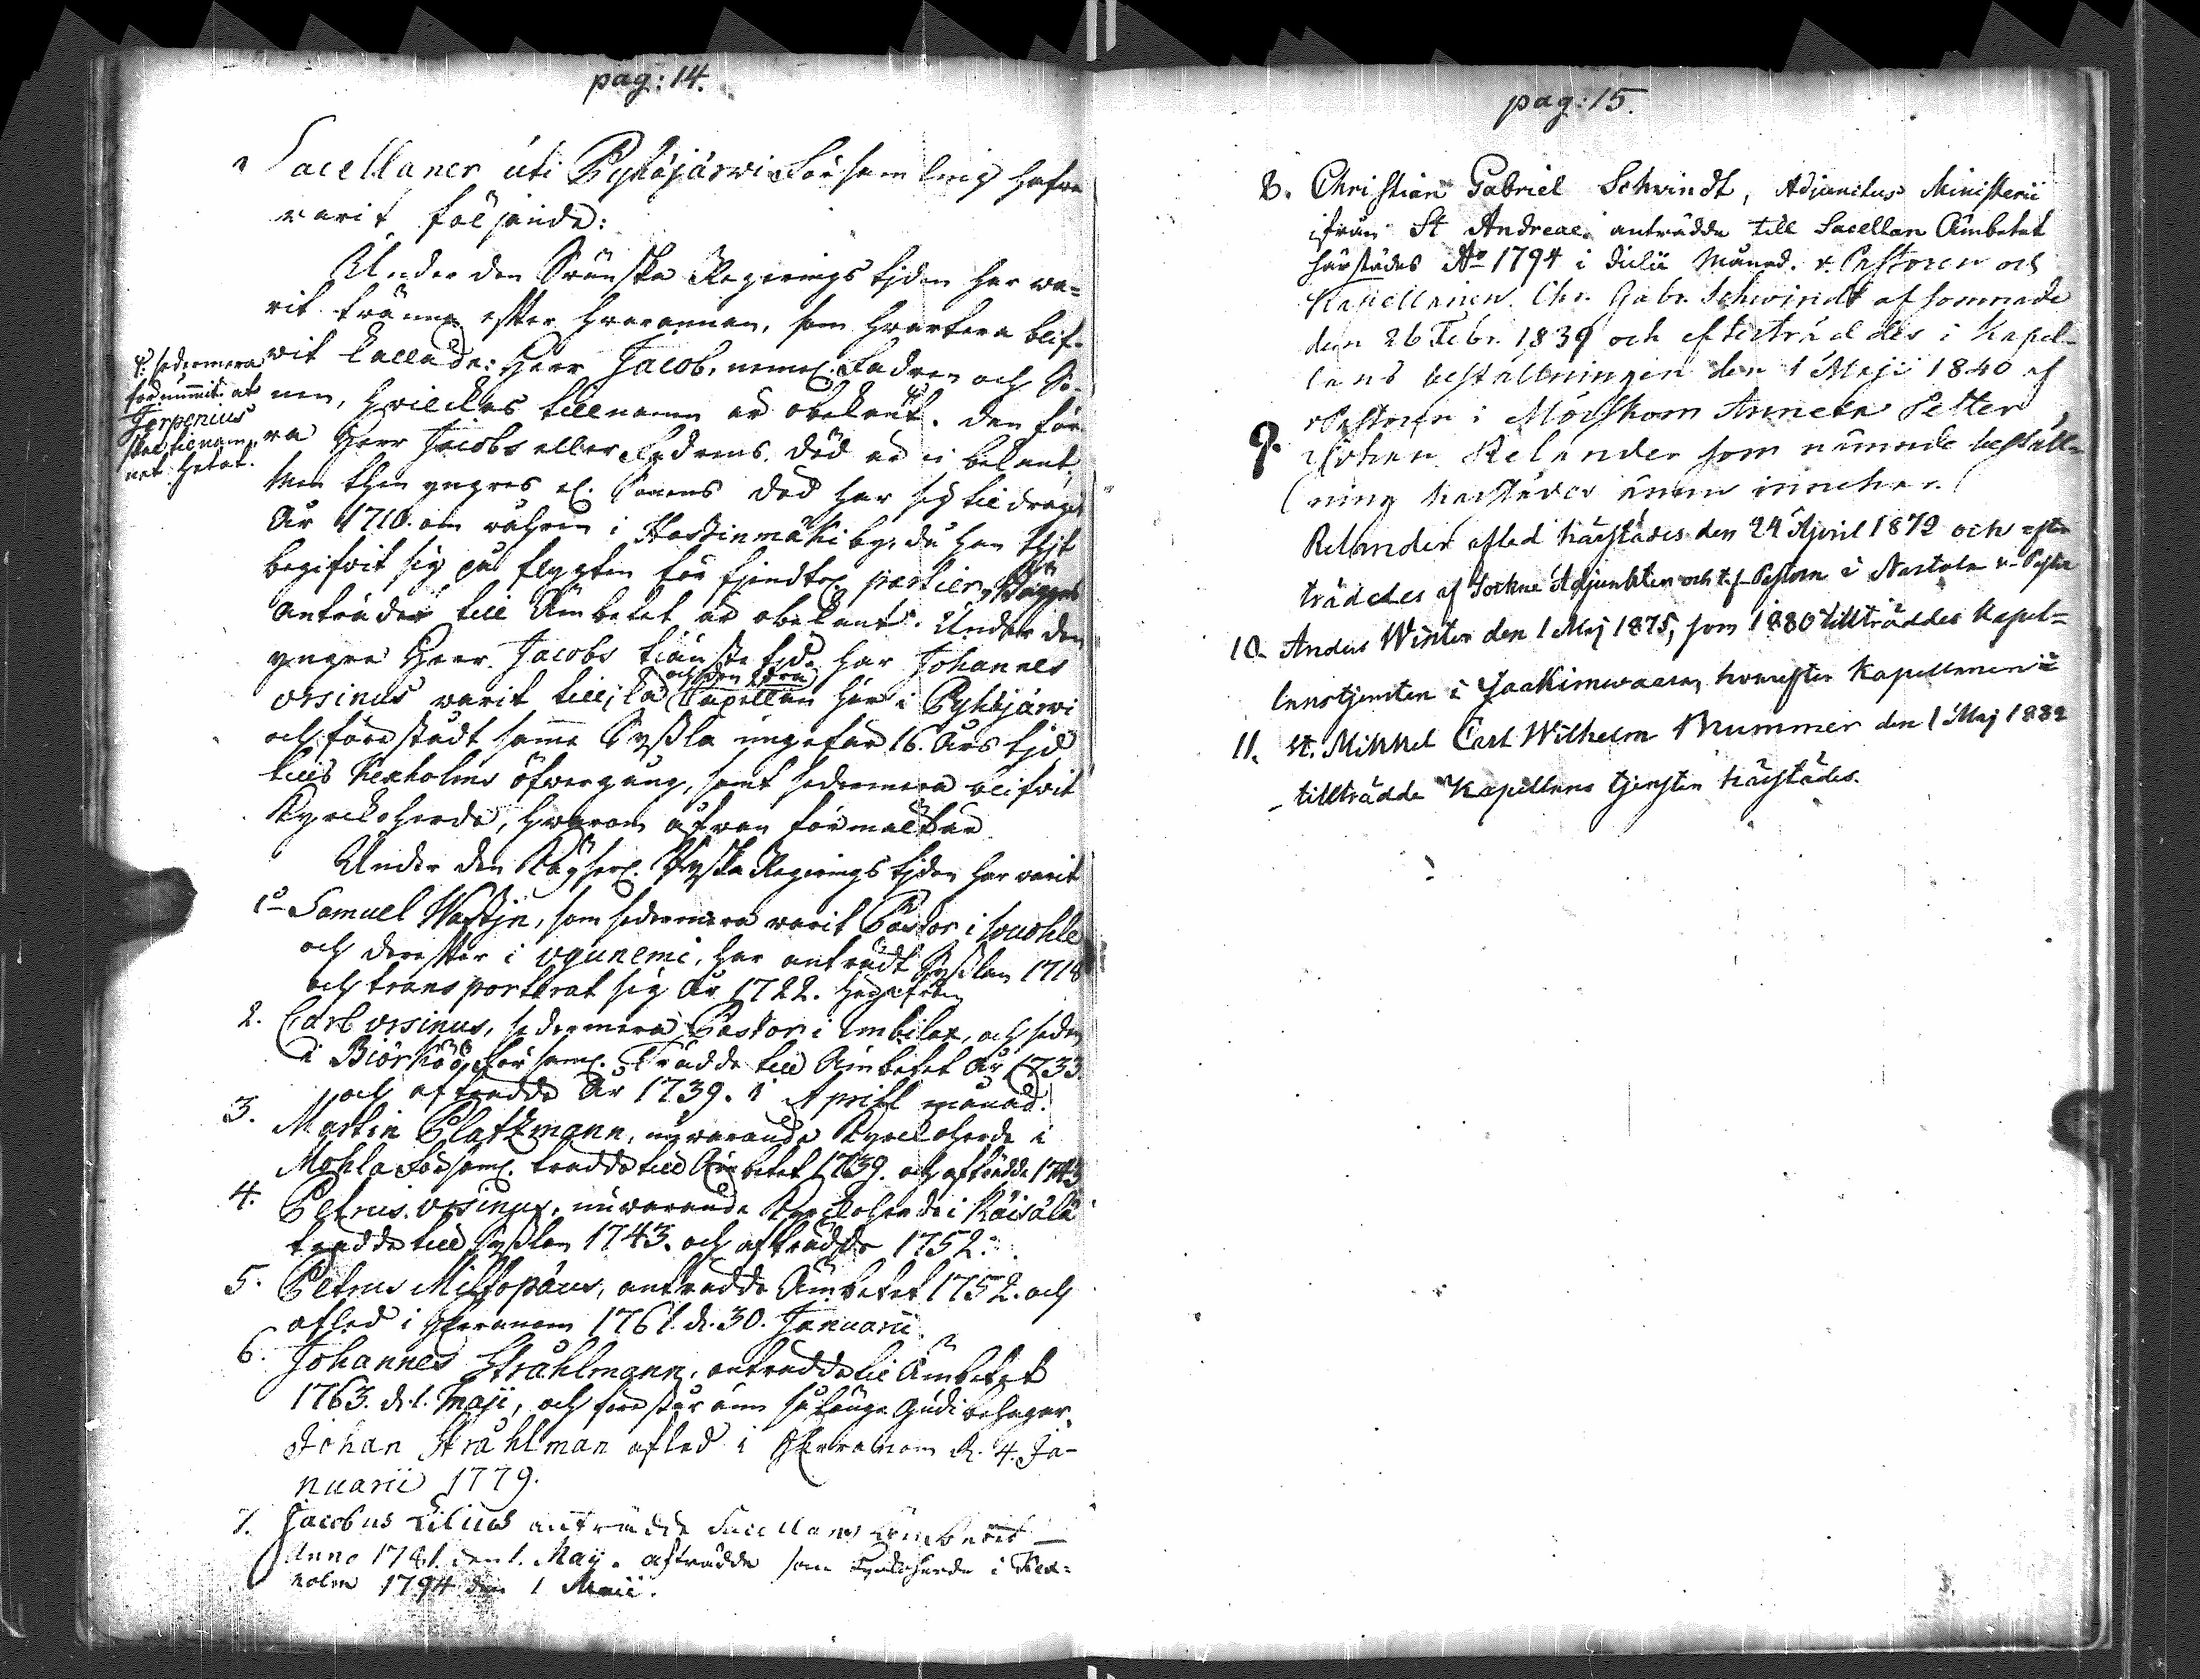 pag: 14.
Sacellaner uti Pyhäjärwi Församling hafwa
varit följande:
Under den Svänska Regerings tjden har wa-
rit tvänne efter hvarannan, som hvartera blif-
wit kallade: Herr Jacob, neml. Fadren och So-
nen, hvilckas tillnamn är obekant. Den för
ra Herr Jacobs eller Fadrens död är ei bekant
Men then yngres el. Sonens död har sig tildragit
År 1710. om våhren i Hassinmäki by, då han thjt
begifvit sig på flygten för fiendtl. partier, Bägges
Anträde till Ämbetet är obekant. Under den
yngre Herr Jacobs tiänste tjd har Johannes
Orsinus varit tillika Capellan här i Pyhäjärwi
och förestådt samma Syßla ungefär 16. års tjd
tills Kexholms öfvergång, samt sedermera blifvit
Kyrckoherde, hwarom ofwan förmältes
Under den Käyserl. Ryska Regerings tjden har varit
sedermera
förnummit at
Terpenius
skal
hetat.
1o Samuel Wastjn, som sedermera varit Pastor i
och derefter i Ugunemi, har antrådt Syßlan 1718
och transporterat sig År 1722. härifrån
2. Carl Orsinus, sedermera Pastor i Imbilax, och sedan
i Biörkö Församl. Trädde till Ämbetet År 1733.
och afträdde År 1739. i Aprill månad.
3. Martin Platzmann, nuvarande Kyrckoherde i
Mohla Församl. trädde till Ämbetet 1739. och afträdde 1743
4. Petrus Orsinus, nuvarande Kyrckoherde i Räisälä
trädde till Syßlan 1743. och afträdde 1752.
5. Petrus Melistopæus, anträdde Ämbetet 1752. och
afled i Herranom 1761. d. 30. Januarii
6. Johannes Stråhlmann, anträdde til Ämbetet
1763. d. 1. Maji, och förestår änn så länge Gudi behagar.
Johan Stråhlman afled i Herranom d. 4. Ja-
nuarii 1779.
7. Jacobus Lilius anträdde Sacellans Ämbetet
Anno 1781. den 1. Maij. afträdde som Kyrckoherde i Kex-
holm 1794 den 1 Maii.
pag: 15.
8. Christian Gabriel Schwindt, Adjunctus Ministerii
ifrån St Andreae anträdde till Sacellan Ämbetet
härstädes Ao 1794 i Julii Månad. v. Pastoren och
Kapellanen Chr. Gabr. Schwindt afsomnade
den 26 Febr. 1839 och efterträddes i Kapel-
lans beställningen den 1 Maji 1840 af
9. v Pastorn i Mörskom Annexa Petter
Johan Relander som nämnde beställ-
ning härstädes ännu innehar.
Relander afled härstädes den 24 April 1872 och efter
träddes af Sockne Adjunkten och t.f. Pastorn i Nastola v. Pastor
10. Anders Winter den 1 Maj 1875, som 1880 tillträdde Kapel-
lanstjensten i Jaakimwaara, hvarefter Kapellanen i
11. St. Mikkel Carl Wilhelm Brummer den 1 Maj 1882
tillträdde Kapellans tjensten härstädes.